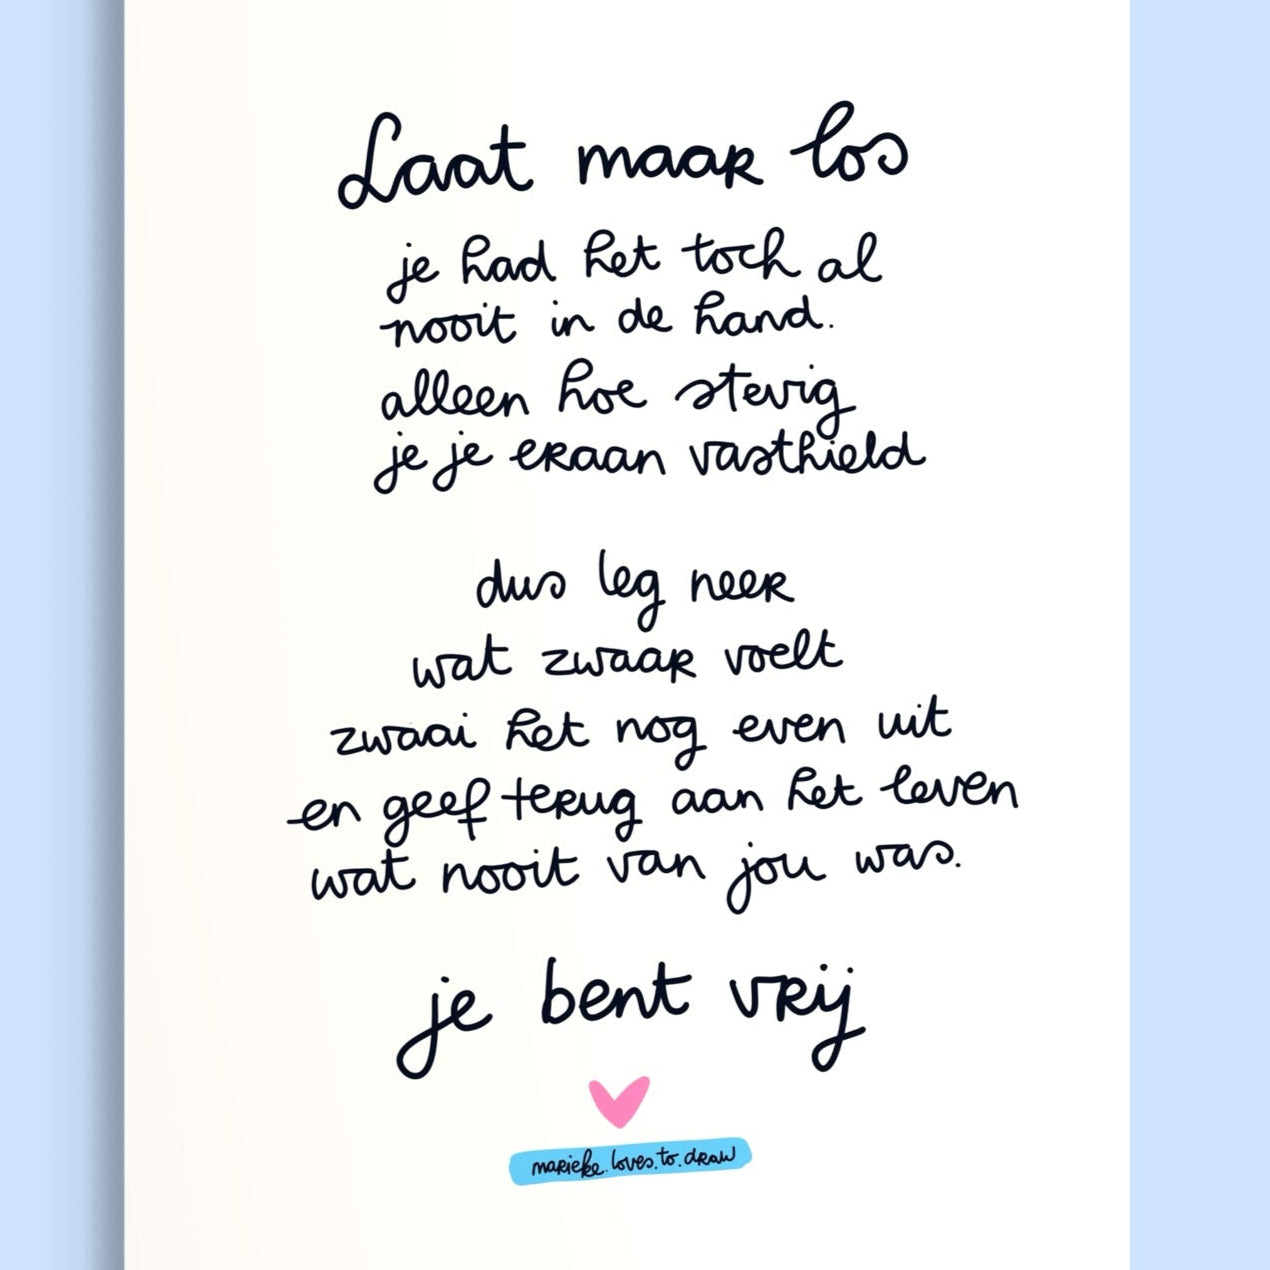 Laat maar los
je had het toch al
nooit in de hand.
alleen hoe stevig
je je eraan vasthield
dus leg neer
wat zwaar voelt
zwaai het nog even uit
en geef terug aan het leven
wat nooit van jou was.
je bent vrij
marieke.loves.to.draw